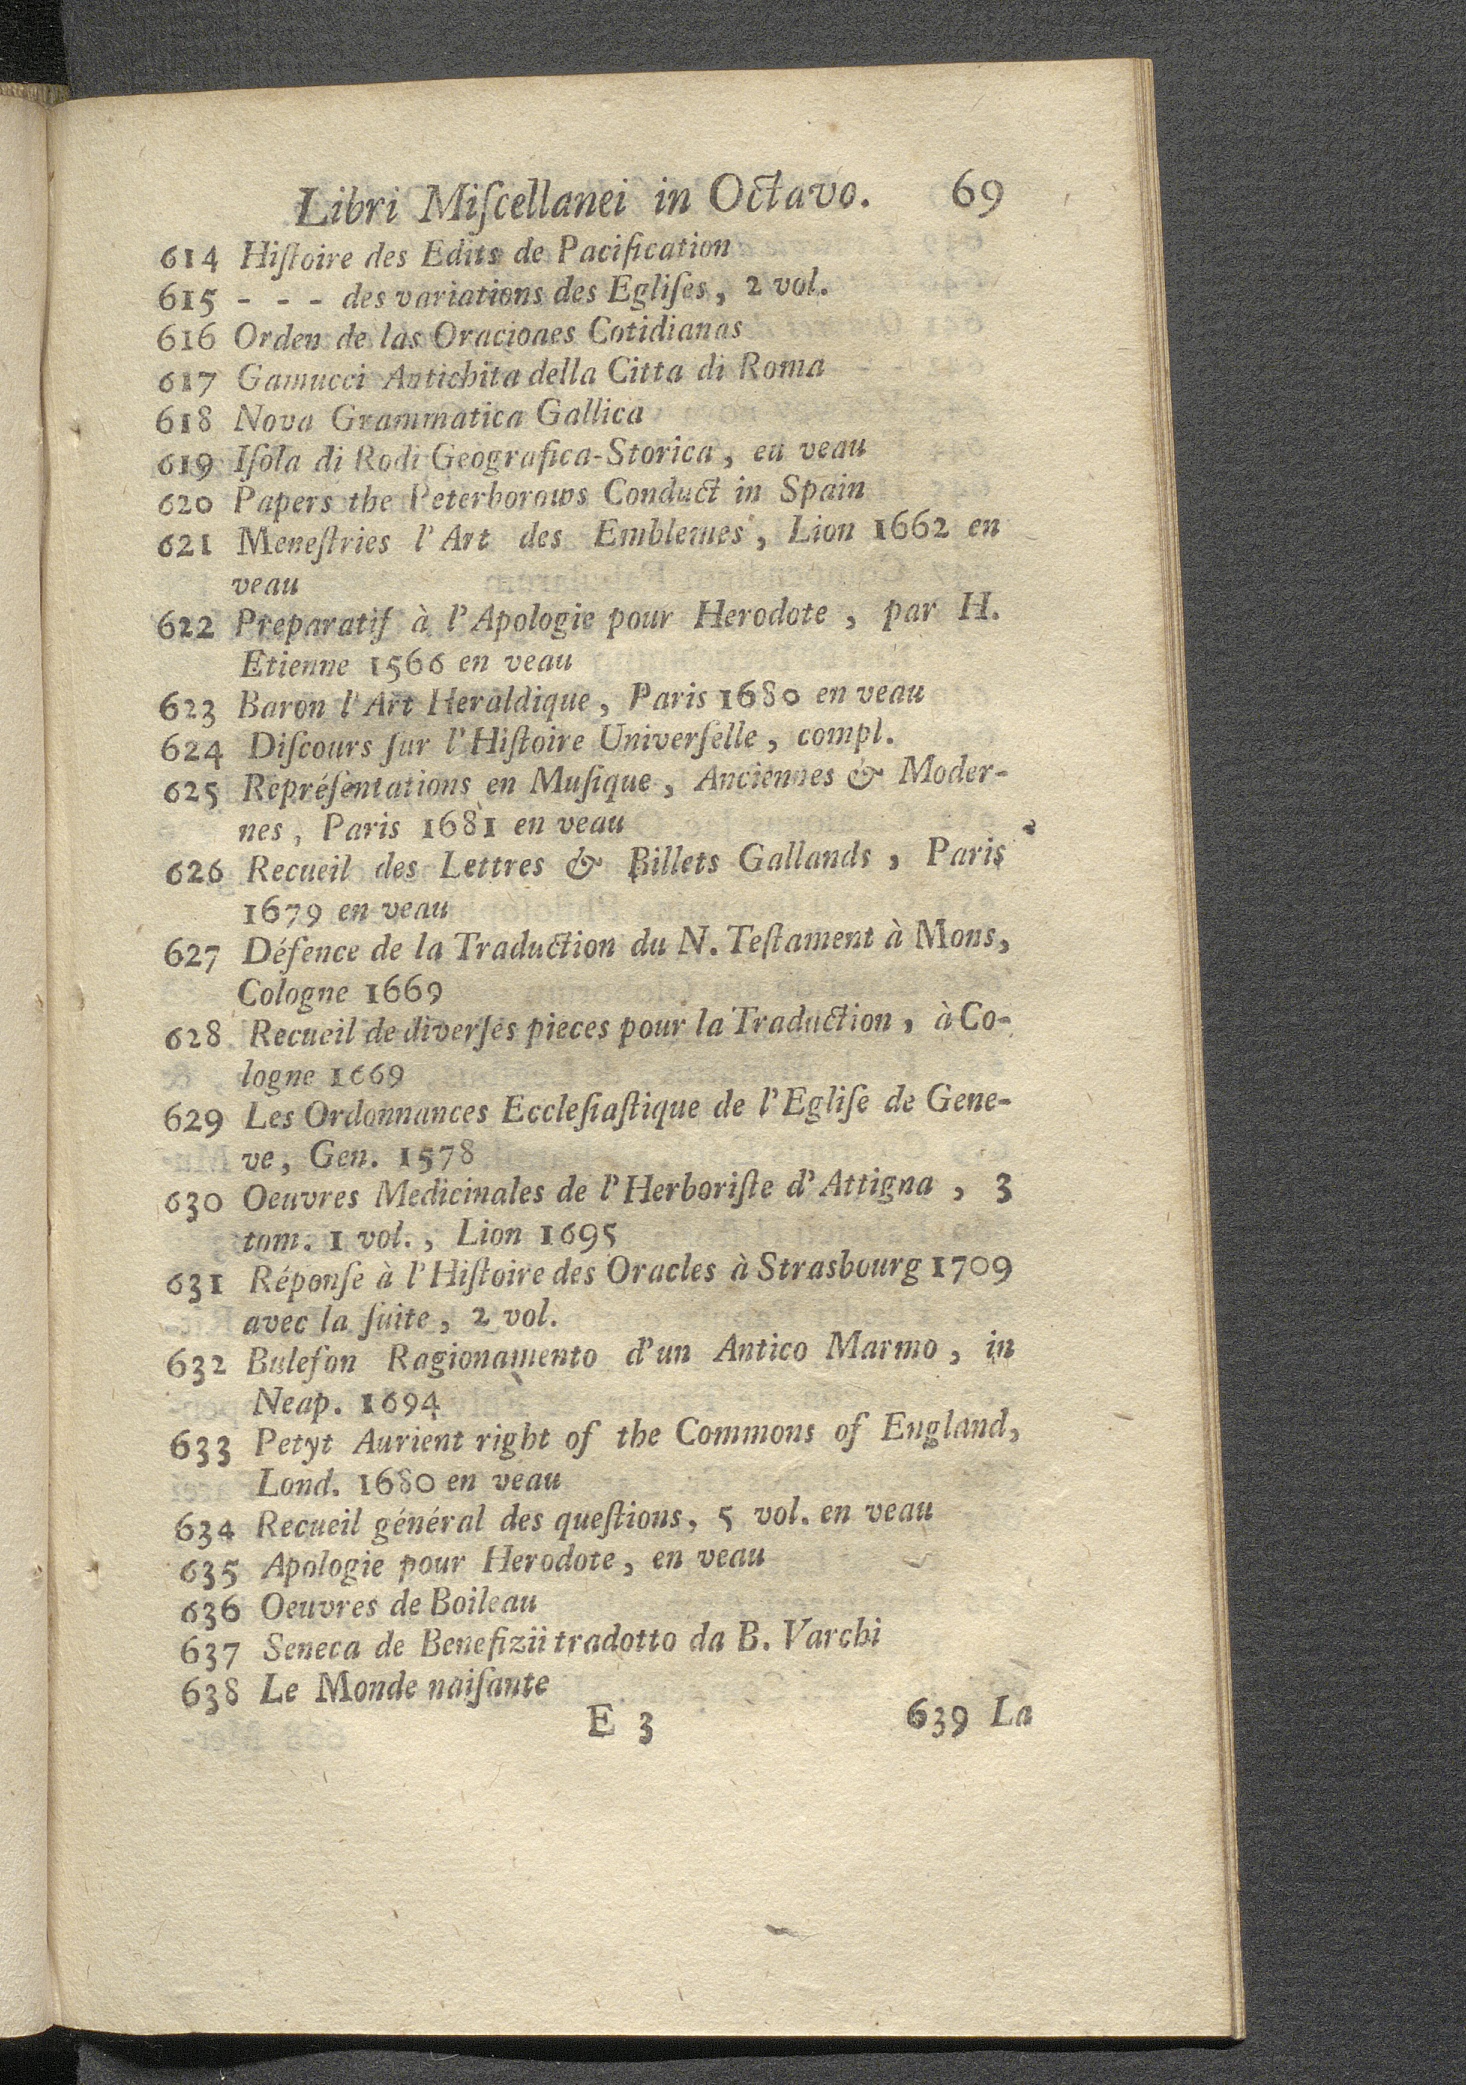 Libri Miſcellanei in Octavo. 69
614 Hiſtoire des Edits de Pacification
615 - - - des variations des Egliſes, 2 vol.
616 Orden de las Oraciones Cotidianas
617 Gamucci Antichita della Citta di Roma
618 Nova Grammatica Gallica
619 Iſola di Rodi Geografica-Storica, en veau
620 Papers the Peterborows Conduct in Spain
621 Meneſtries l'Art des Emblemes, Lion 1662 en
veau
622 Preparatif à l'Apologie pour Herodote, par H.
Etienne 1566 en veau
623 Baron l'Art Heraldique, Paris 1680 en veau
624 Diſcours ſur l'Hiſtoire Univerſelle, compl.
625 Repréſentations en Muſique, Anciennes & Moder-
nes, Paris 1681 en veau
626 Recueil des Lettres & Billets Gallands, Paris
1679 en veau
627 Défence de la Traduction du N. Teſtament à Mons,
Cologne 1669
628 Recueil de diverſes pieces pour la Traduction, à Co-
logne 1669
629 Les Ordonnances Eccleſiaſtique de l'Egliſe de Gene-
ve, Gen. 1578
630 Oeuvres Medicinales de l'Herboriſte d'Attigna, 3
tom. 1 vol., Lion 1695
631 Réponſe à l'Hiſtoire des Oracles à Strasbourg 1709
avec la ſuite, 2 vol.
632 Buleſon Ragionamento d'un Antico Marmo, in
Neap. 1694
633 Petyt Aurient right of the Commons of England,
Lond. 1680 en veau
634 Recueil général des queſtions, 5 vol. en veau
635 Apologie pour Herodote, en veau
636 Oeuvres de Boileau
637 Seneca de Benefizii tradotto da B. Varchi
638 Le Monde naiſante
E 3 639 La